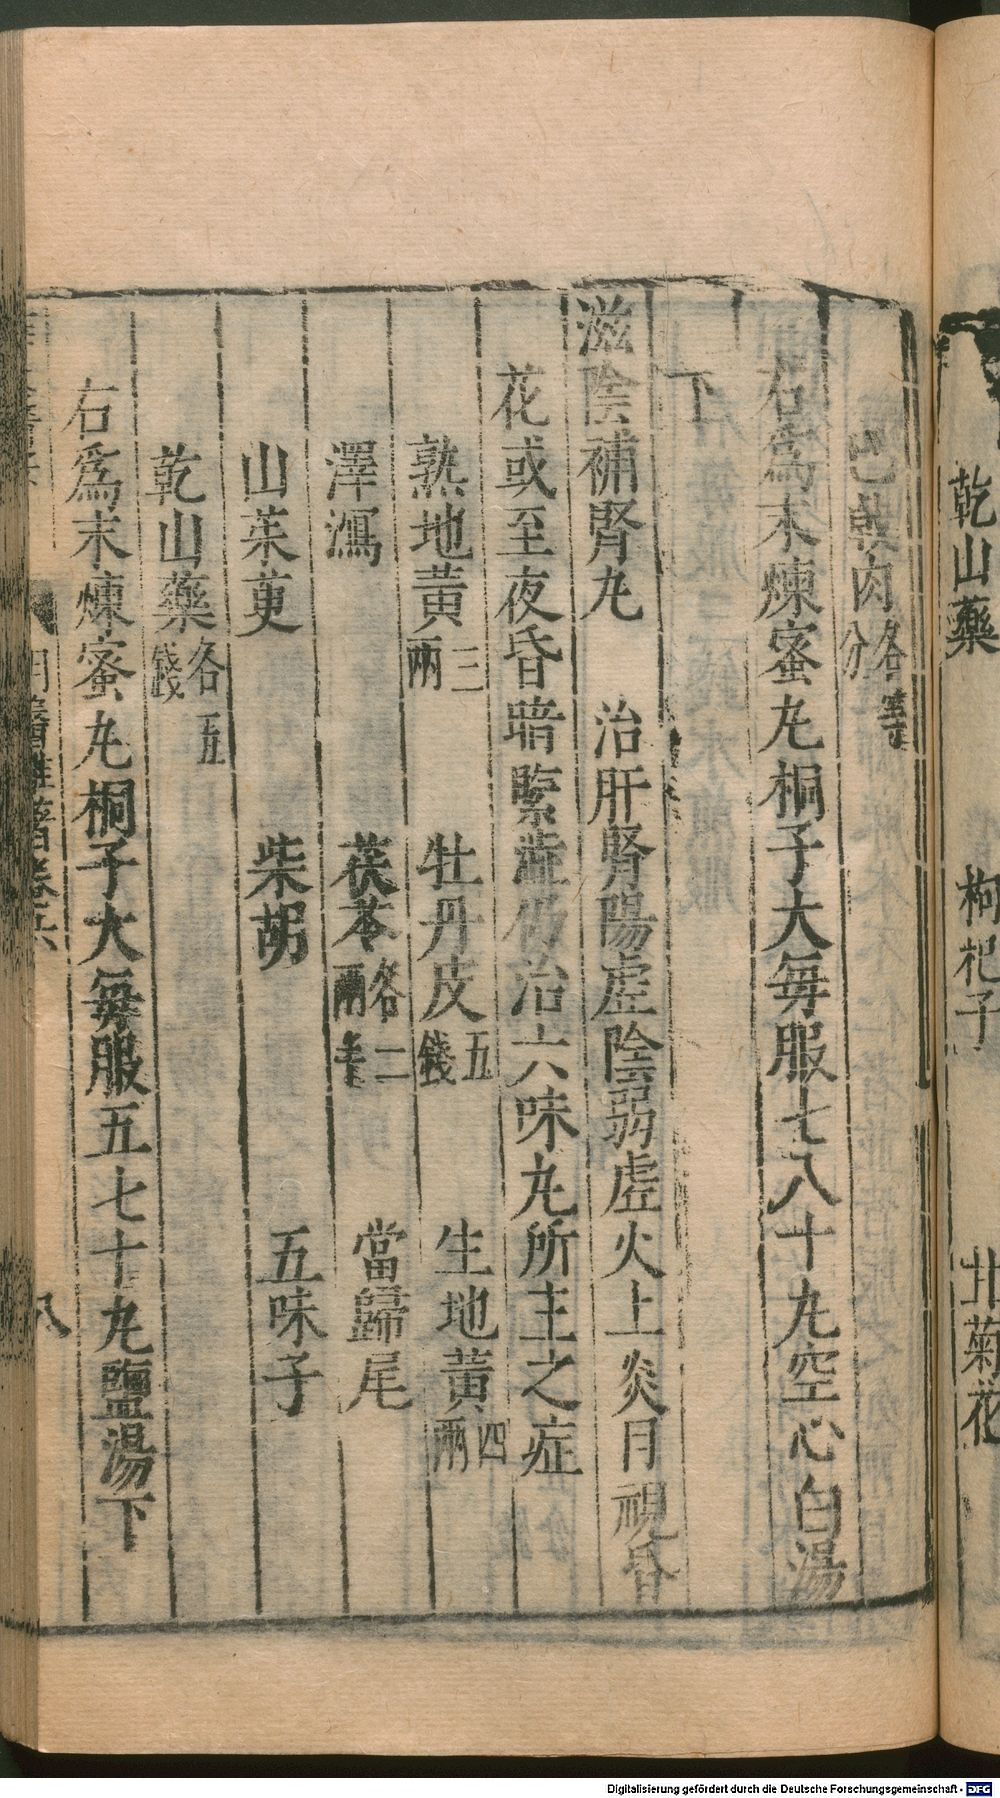 乾山藥 枸杞子 北菊花
巴戟肉各等分
右為末煉蜜丸桐子大每服七八十丸空心白湯
下
滋陰補腎丸 治肝腎陽虛陰弱虛火上炎目視昏
花或至夜昏暗緊澁仍治六味丸所主之症
熟地黃三兩 牡丹皮五錢 生地黃四兩
澤瀉 茯苓各二兩半 當歸尾
山茱萸 柴胡 五味子
乾山藥各五錢
右為末煉蜜丸桐子大每服五七十丸鹽湯下
明醫雜著卷六 八
Digitalisierung gefördert durch die Deutsche Forschungsgemeinschaft - DFG